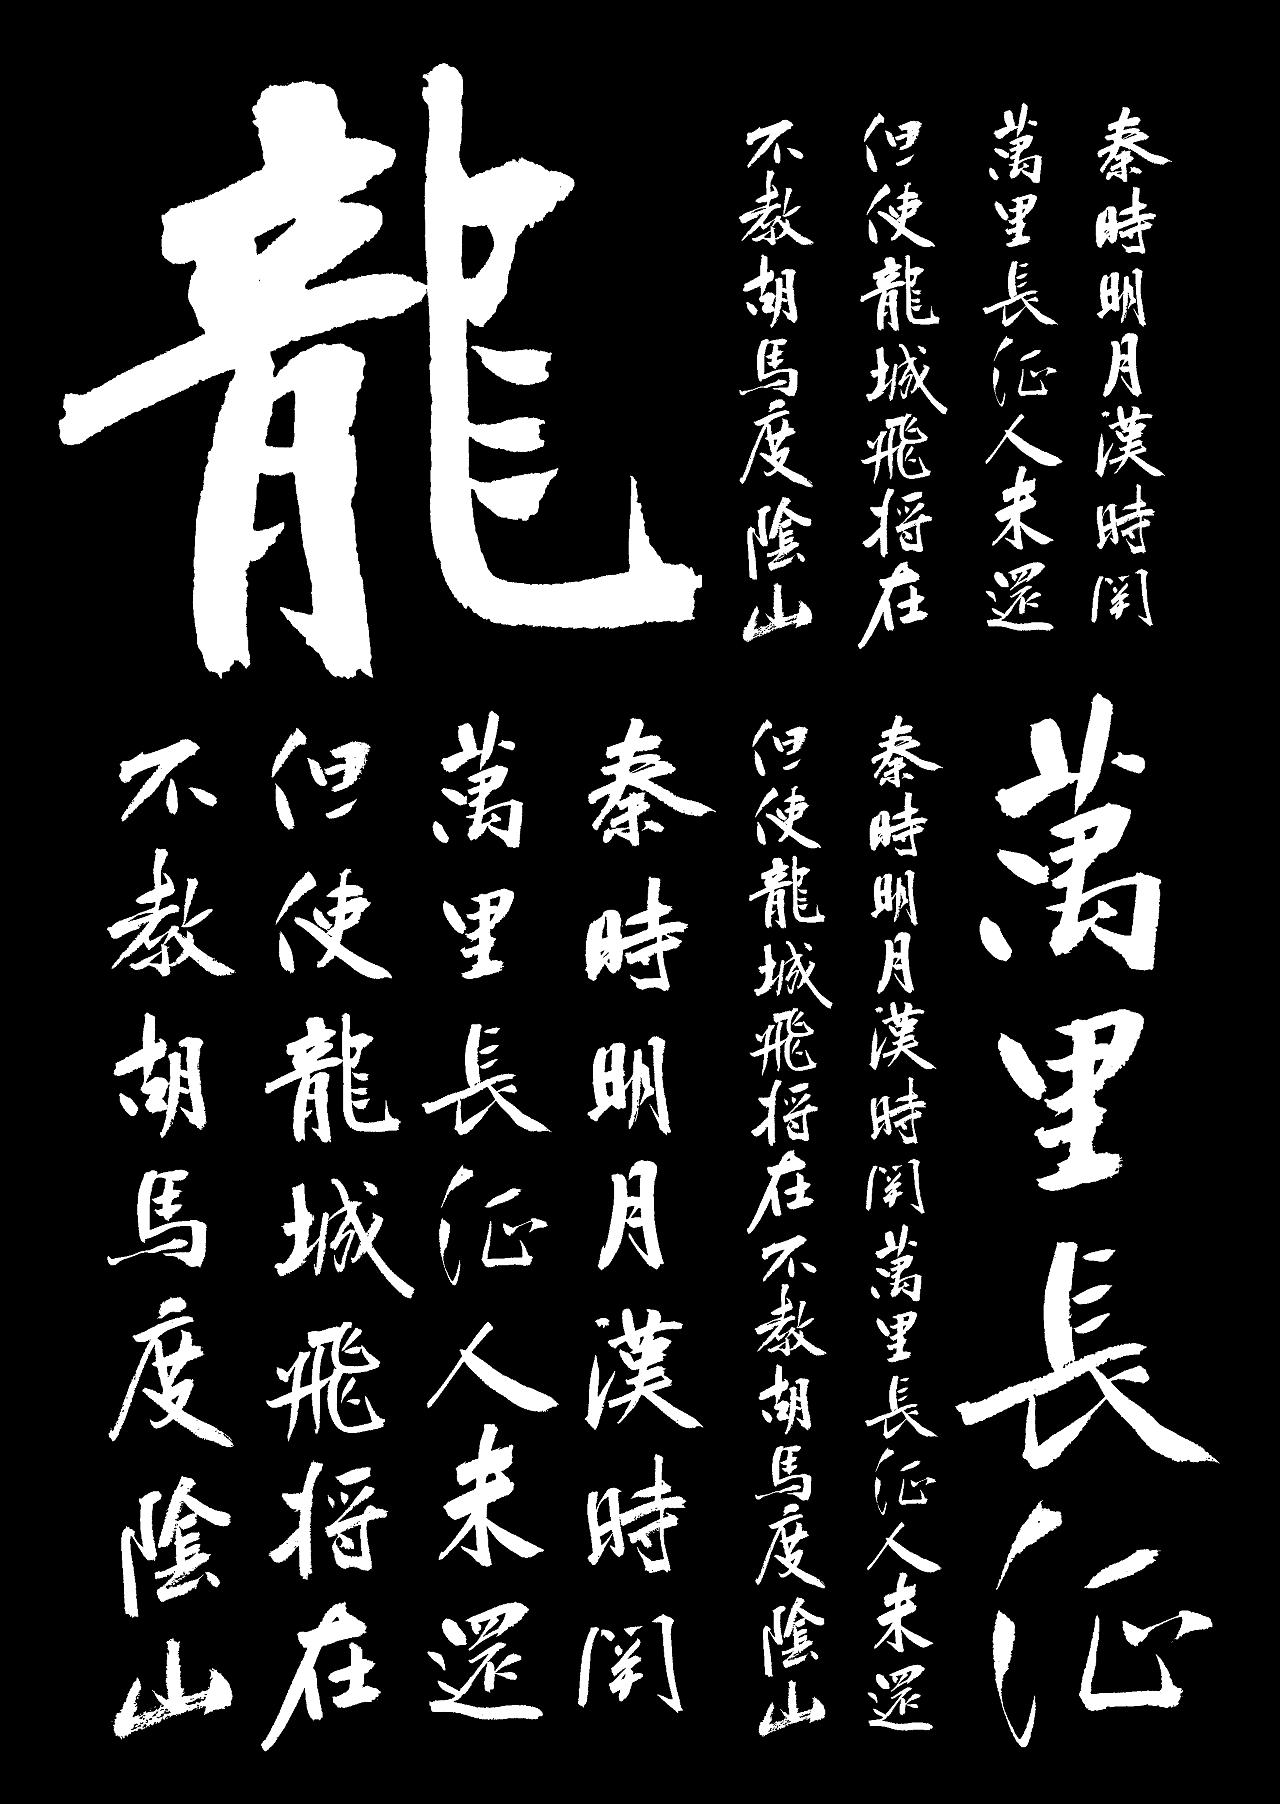 龍
秦時明月漢時関
萬里長征人未還
但使龍城飛将在
不教胡馬度陰山
萬里長征
秦時明月漢時関萬里長征人未還
但使龍城飛将在不教胡馬度陰山
秦時明月漢時関
萬里長征人未還
但使龍城飛将在
不教胡馬度陰山